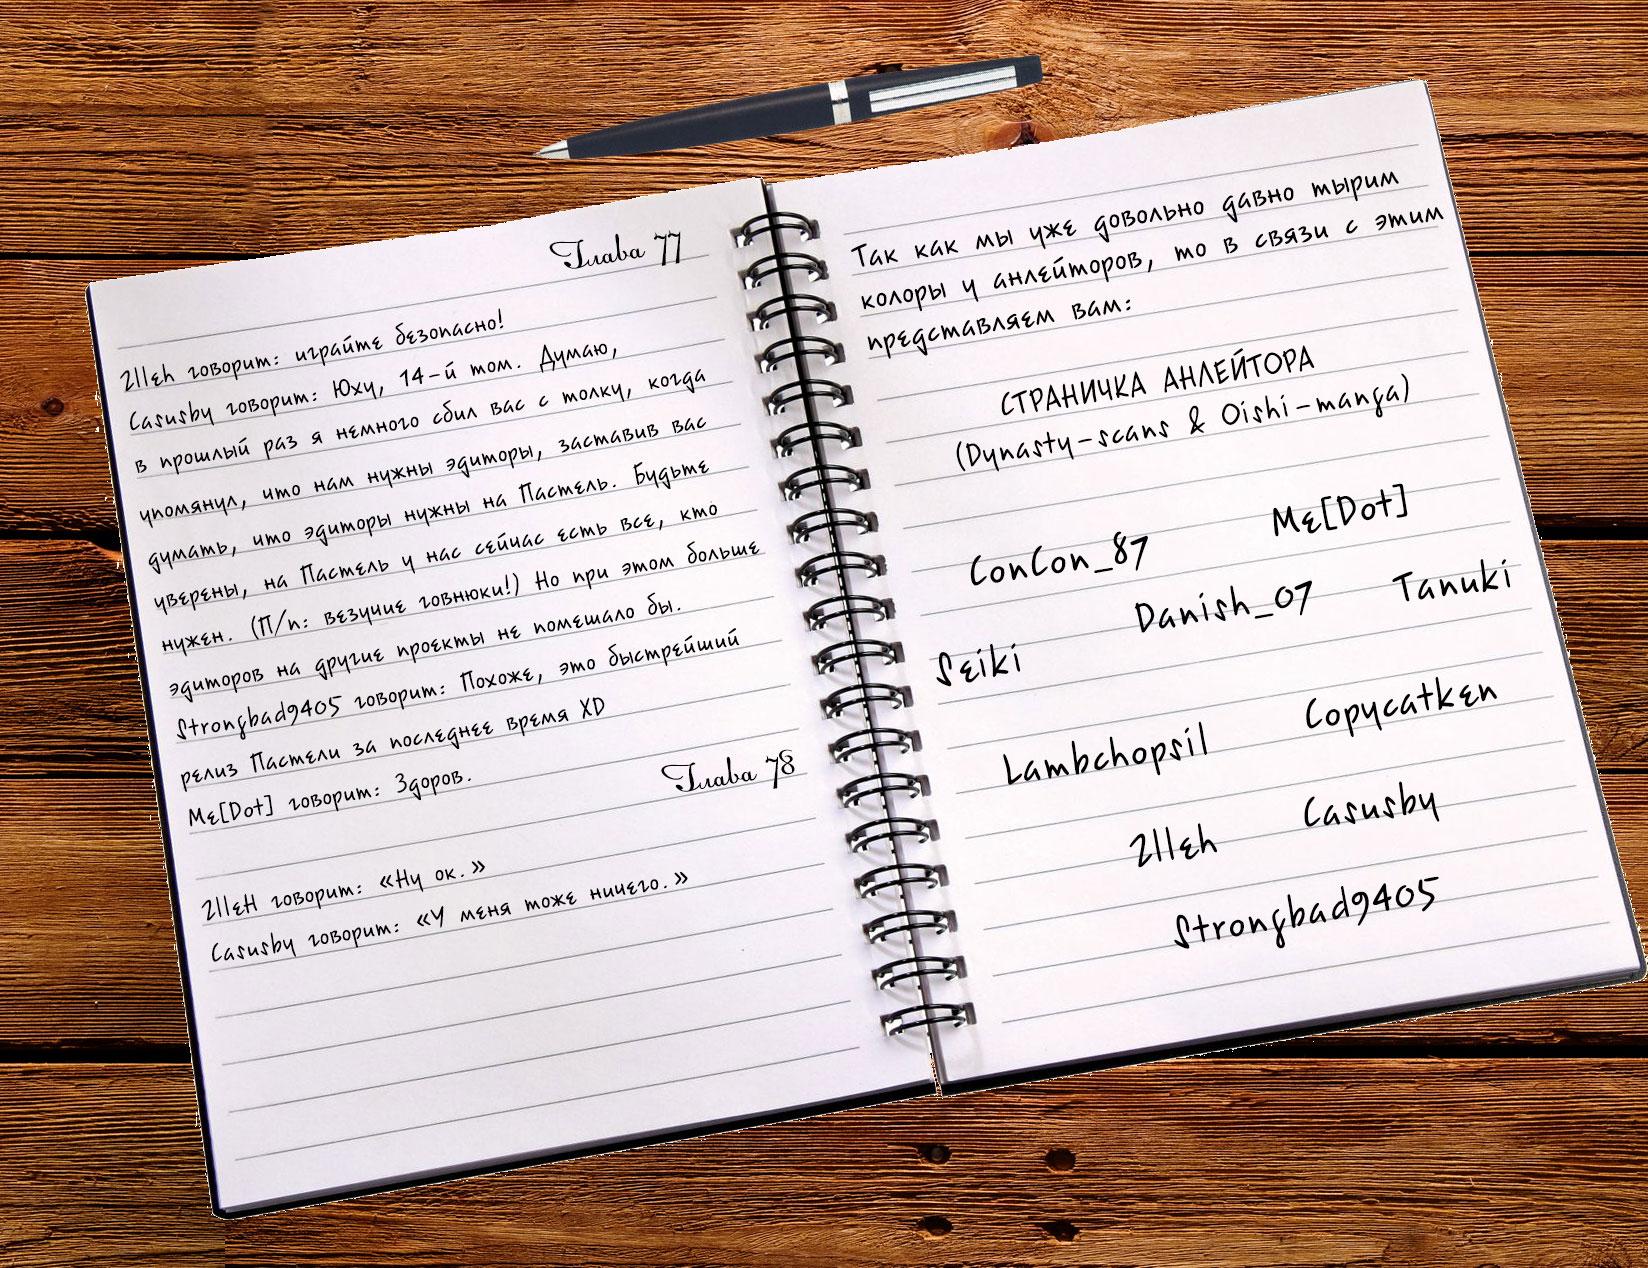 Глава 77
2lleh говорит: играйте безопасно!
Casusby говорит: Юху, 14-й том. Думаю,
в прошлый раз я немного сбил вас с толку, когда
упомянул, что нам нужны эдиторы, заставив вас
думать, что эдиторы нужны на Пастель. Будьте
уверены, на Пастель у нас сейчас есть все, кто
нужен. (П/п: везучие говнюки!) Но при этом больше
эдиторов на другие проекты не помешало бы.
Strongbad9405 говорит: Похоже, это быстрейший
релиз Пастели за последнее время XD
Me[Dot] говорит: Здоров.
Глава 78
2lleH говорит: «Ну ок.»
Casusby говорит: «У меня тоже ничего.»
Так как мы уже довольно давно тырим
колоры у анлейторов, то в связи с этим
представляем вам:
СТРАНИЧКА АНЛЕЙТОРА
(Dynasty-scans & Oishi-manga)
ConCon_87 Me[Dot]
Seiki Danish_07 Tanuki
Lambchopsil Copycatken
2lleh Casusby
Strongbad9405